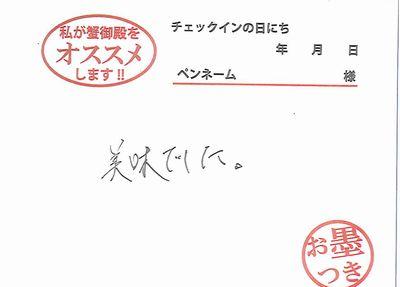 私が蟹御殿を
オススメ
します!!
チェックインの日にち
年 月 日
ペンネーム 様
美味でした。
お墨
つき